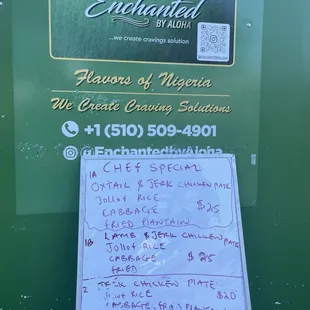 Enchanted
BY ALOHA
...we create cravings solution
Flavors of Nigeria
We Create Craving Solutions
+1 (510) 509-4901
@EnchantedbyAloha
1A CHEF SPECIAL
OXTAIL & JERK CHICKEN PLATE
JOLLOF RICE
CABBAGE $25
FRIED PLANTAIN
1B LAMB & JERK CHICKEN PLATE
JOLLOF RICE
CABBAGE $25
FRIED
2 JERK CHICKEN PLATE
RICE $20
CABBAGE, FRIED